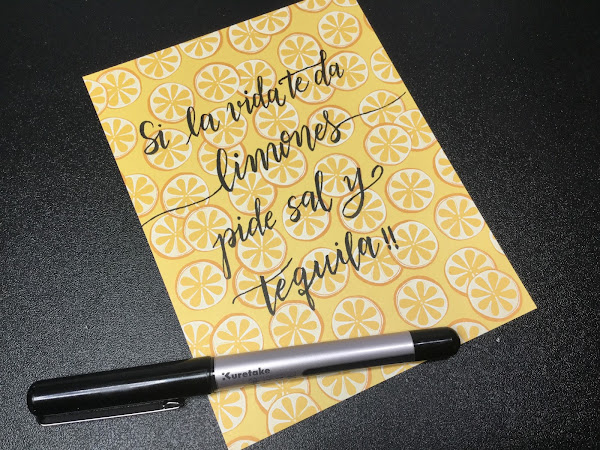 Si la vida te da
limones
pide sal y
tequila!!
Kuretake